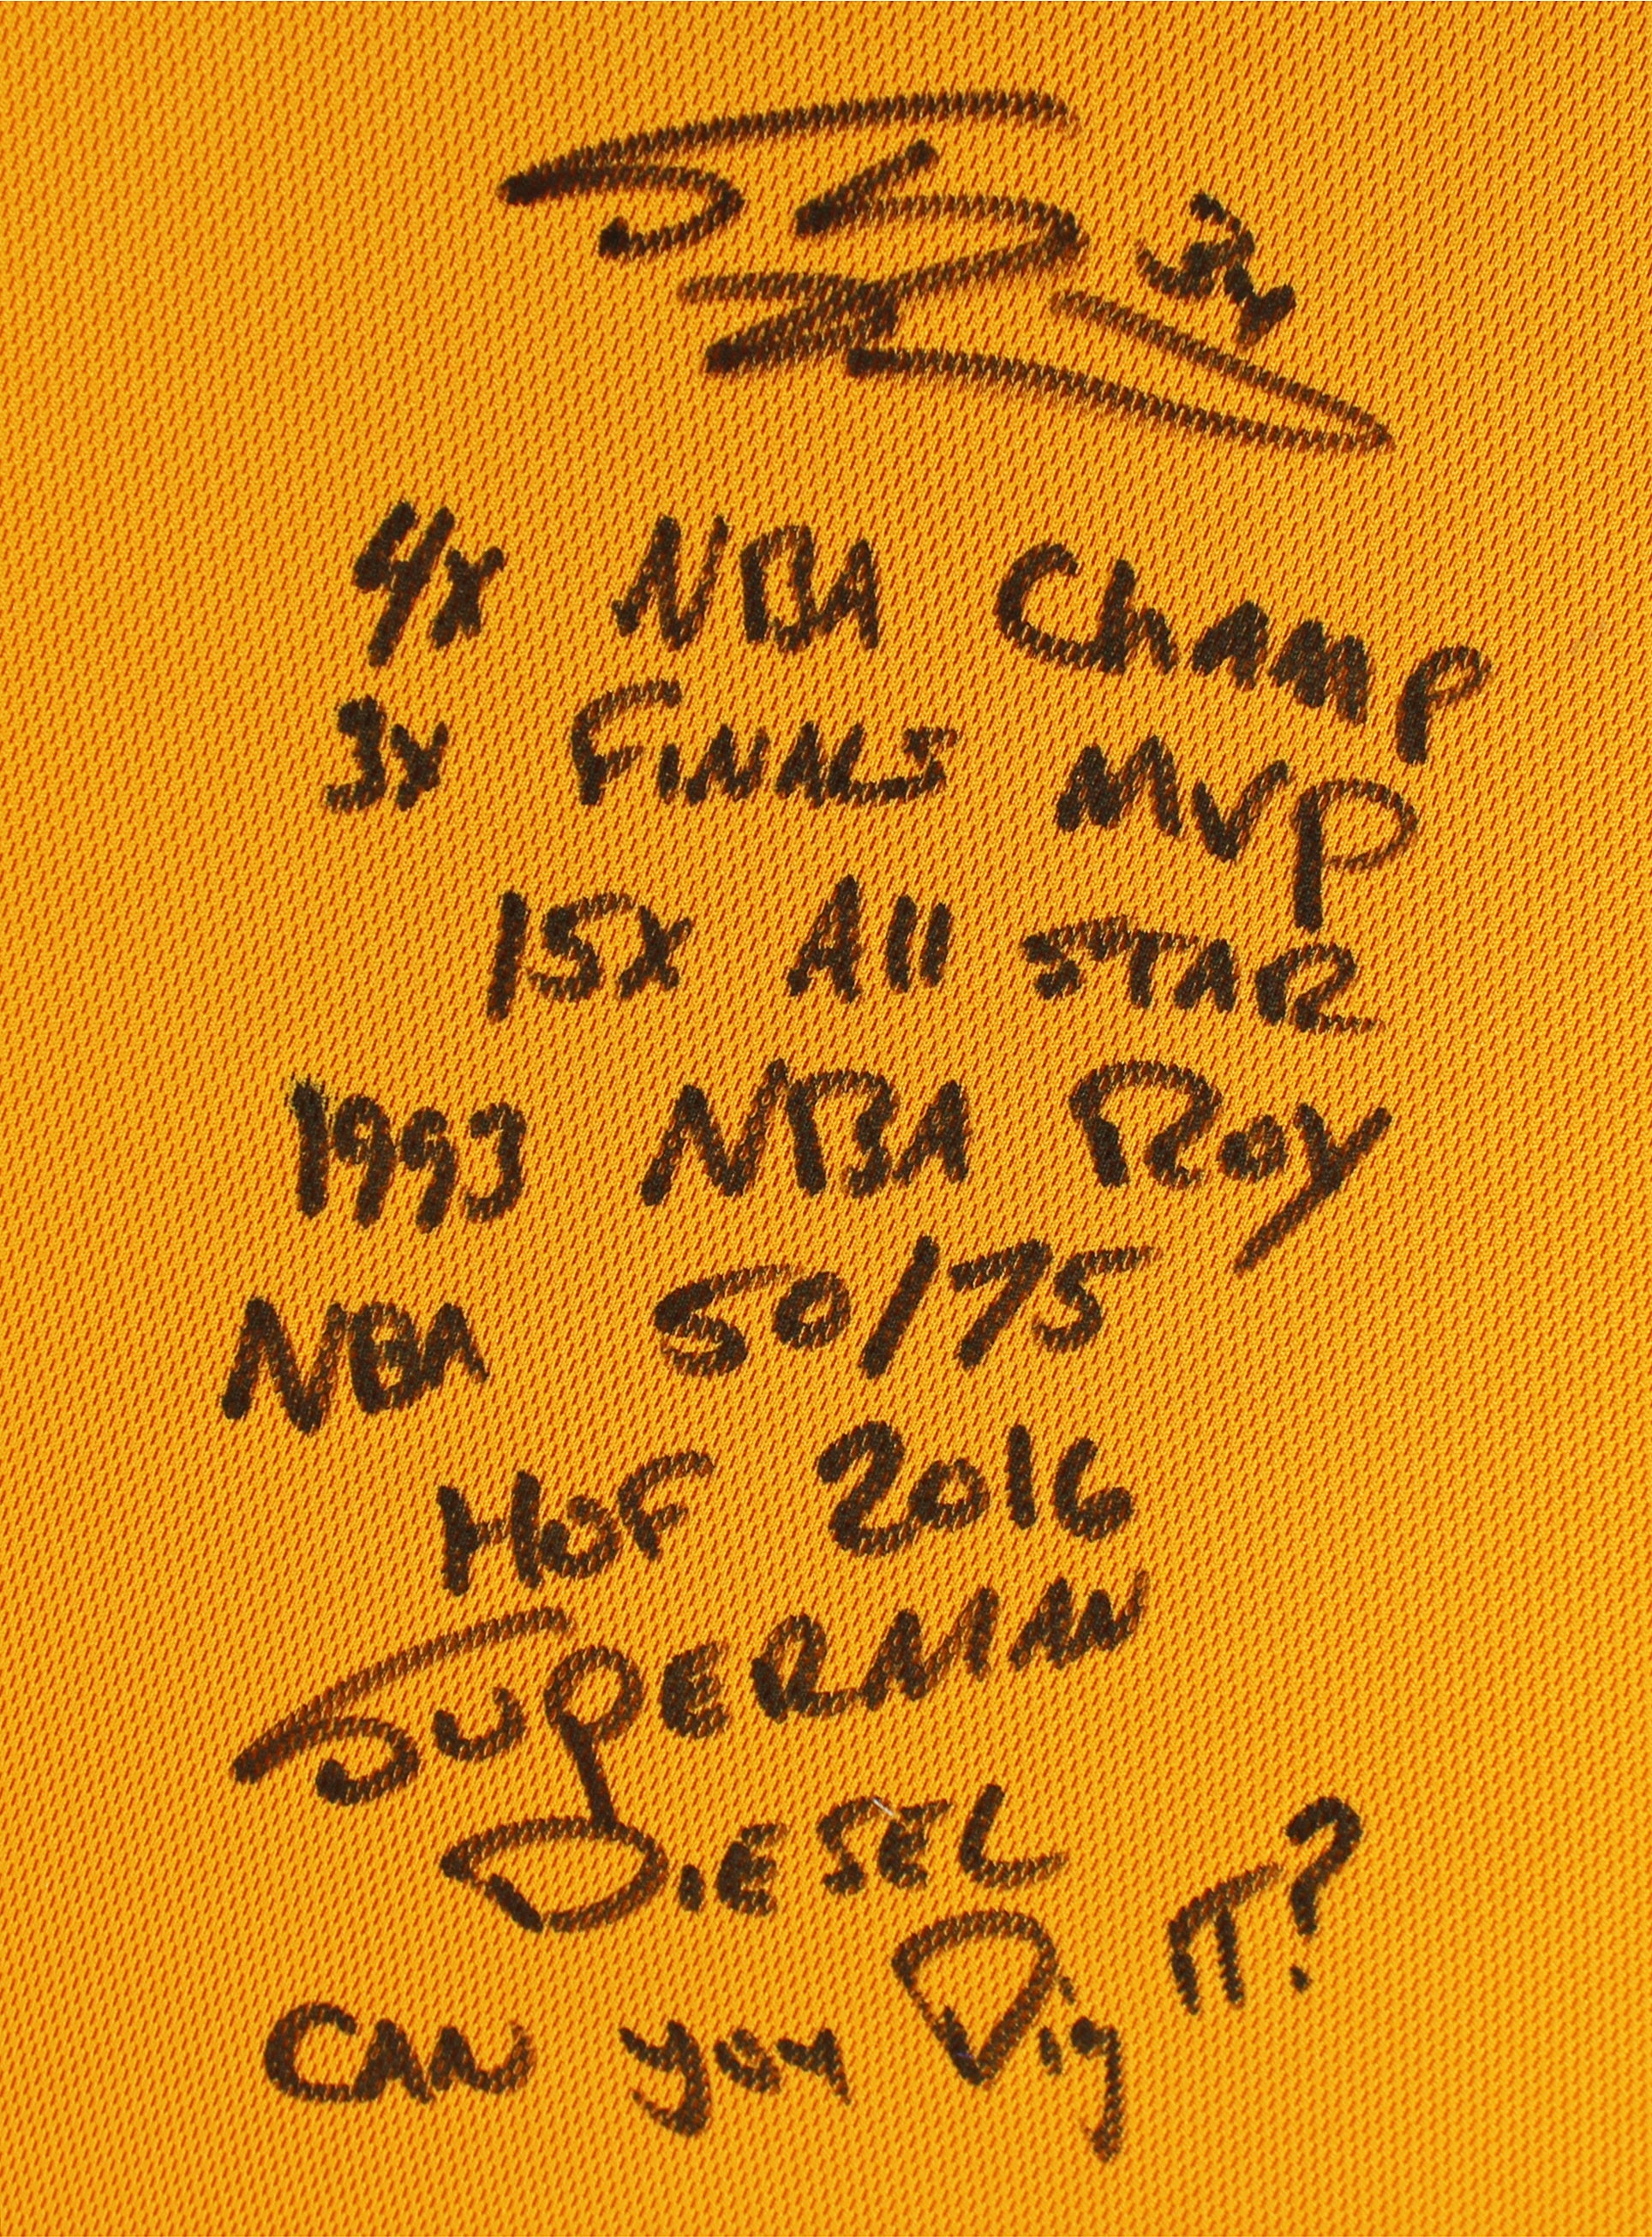 34
4x NBA Champ
3x FINALS MVP
15x All STAR
1993 NBA ROY
NBA 50/75
HOF 2016
SUPERMAN
DIESEL
CAN you Dig IT?